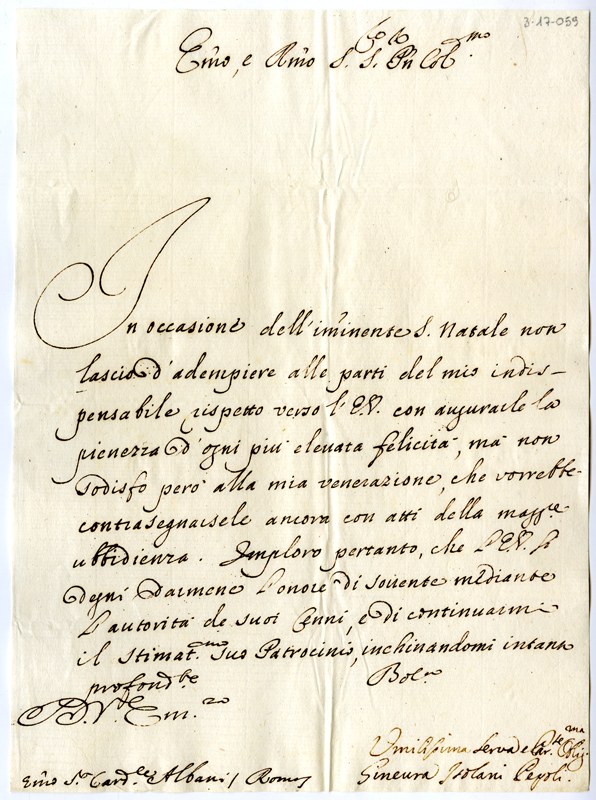 3-17-059
Emo, e Rmo S. S. Pñ Col.mo
In occasione dell'imminente S. Natale non
lascio d'adempiere alle parti del mio indis-
pensabile rispetto verso l'E.V. con augurarle la
pienezza d'ogni più elevata felicità, ma non
sodisfo però alla mia venerazione, che vorrebbe
contrasegnarsele ancora con atti della magg.re
ubbidienza. Imploro pertanto, che l'E.V. si
degni darmene l'onore di sovente mediante
l'autorità de suoi Cenni, e di continuarmi
il stimat.mo suo Patrocinio, inchinandomi intanto
profond.te Bol.a
D. V. Em.za
Umilissima serva e Oblig.ma
Emo S.r Card.le Albani / Roma
Gineura Isolani Pepoli